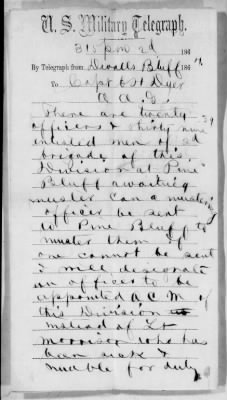 U. S. Military Telegraph.
315 pm 2d 186
By Telegraph from Duvalls Bluff 186
To Capt C H Dyer
A A G
There are twenty
officers & thirty nine 39
enlisted men of 2d
brigade of this
Division at Pine
Bluff awaiting
muster Can a mustering
officer be sent
to Pine Bluff to
muster them If
one cannot be sent
I will designate
an officer to be
appointed A.C.M. of
this Division
instead of Lt
Morrison who has
been sick &
unable for duty